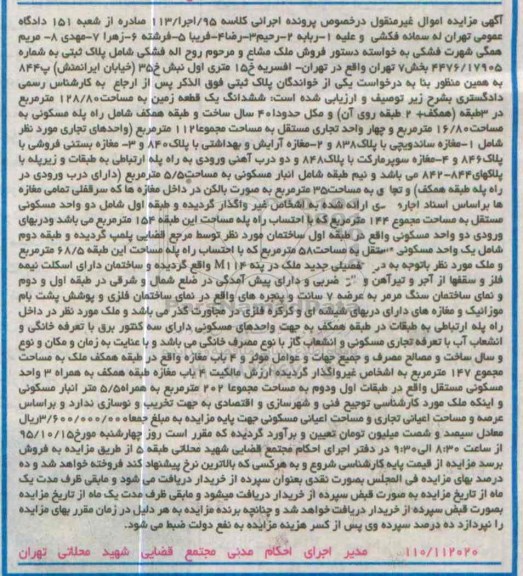 آگهی مزایده اموال غیرمنقول درخصوص پرونده اجرائی کلاسه 95/اجرا/113 صادره از شعبه 151 دادگاه
عمومی تهران له سمانه فکشی و علیه 1-ربابه 2-رحیم 3-رضا 4-فریبا 5-فرشته 6-زهرا 7-مهدی 8- مریم
همگی شهرت فشگی به خواسته دستور فروش ملک مشاع و مرحوم روح اله فشکی شامل پلاک ثبتی به شماره
4476/17905 بخش 7 تهران واقع در تهران- افسریه خ 15 متری اول نبش خ 35 (خیابان ایرانمنش) پ 844
به همین منظور بنا به درخواست یکی از خواندگان پلاک ثبتی فوق الذکر پس از ارجاع به کارشناس رسمی
دادگستری بشرح زیر توصیف و ارزیابی شده است: ششدانگ یک قطعه زمین به مساحت 128/80 مترمربع
در 3 طبقه (همکف+ 2 طبقه روی آن) و مکل حدودا 40 سال ساخت و طبقه همکف شامل راه پله مسکونی به
مساحت 16/80 مترمربع و چهار واحد تجاری مستقل به مساحت مجموعا 112 مترمربع (واحدهای تجاری مورد نظر
شامل 1-مغازه ساندویچی با پلاک 838 و 2-مغازه آرایش و بهداشتی با پلاک 840 و 3- مغازه بستنی فروشی با
پلاک 846 و 4-مغازه سوپرمارکت با پلاک 848 و دو درب آهنی ورودی به راه پله ارتباطی به طبقات و زیرپله با
پلاکهای 844-842 می باشد و نیم طبقه شامل انبار مسکونی به مساحت 5/5 مترمربع (دارای درب ورودی در
راه پله طبقه همکف) و به مساحت 35 مترمربع به صورت بالکن در داخل مغازه ها که سرقفلی تمامی مغازه
ها براساس اسناد ارائه شده به اشخاص غیر واگذار گردیده و طبقه اول شامل دو واحد مسکونی
مستقل به مساحت مجموع 144 مترمربع که با احتساب راه پله مساحت این طبقه 154 مترمربع می باشد ودربهای
ورودی دو واحد مسکونی واقع در طبقه اول ساختمان مورد نظر توسط مرجع قضایی پلمپ گردیده و طبقه دوم
شامل یک واحد مسکونی به مساحت 58 مترمربع که با احتساب راه پله مساحت این طبقه 68/5 مترمربع
و ملک مورد نظر باتوجه به تفصیلی جدید ملک در پهنه M114 واقع گردیده و ساختمان دارای اسکلت نیمه
فلز و سقفها از آجر و تیرآهن و ضربی و دارای پیش آمدگی در ضلع شمال و شرقی در طبقه اول و دوم
و نمای ساختمان سنگ مرمر به عرضه 7 سانت و پنجره های واقع در نمای ساختمان فلزی و پوشش پشت بام
موزائیک و مغازه های دارای دربهای شیشه ای و کرکره فلزی در مجاورت گذر می باشد و ملک مورد نظر در داخل
راه پله ارتباطی به طبقات در طبقه همکف به جهت واحدهای مسکونی دارای سه کنتور برق با تعرفه خانگی و
انشعاب آب با تعرفه تجاری مسکونی و انشعاب گاز با نوع مصرف خانگی می باشد و با عنایت به زمان و مکان و نوع
و سال ساخت و مصالح مصرف و جمیع جهات و عوامل موثر و 4 باب مغازه واقع در طبقه همکف ملک به مساحت
مجموع 147 مترمربع به اشخاص غیرواگذار گردیده ارزش مالکیت 4 باب مغازه طبقه همکف به همراه 3 واحد
مسکونی مستقل واقع در طبقات اول ودوم به مساحت مجموعا 202 مترمربع به همراه 5/5 متر انبار مسکونی
و اینکه ملک مورد کارشناسی توجیح فنی و شهرسازی و اقتصادی به جهت تخریب و نوسازی ندارد و براساس
عرصه و مساحت اعیانی تجاری و مساحت اعیانی مسکونی جهت پایه مزایده به مبلغ جمعا 3/600/000/000 ریال
معادل سیصد و شصت میلیون تومان تعیین و برآورد گردیده که مقرر است روز چهارشنبه مورخ 95/10/15
از ساعت 8:30 الی 9:30 در دفتر اجرای احکام مجتمع قضایی شهید محلاتی طبقه 5 از طریق مزایده به فروش
برسد مزایده از قیمت پایه کارشناسی شروع و به هرکسی که بالاترین نرخ پیشنهاد کند فروخته خواهد شد و ده
درصد بهای مزایده فی المجلس بصورت نقدی بعنوان سپرده از خریدار دریافت می شود و مابقی ظرف مدت یک
ماه از تاریخ مزایده به صورت قبض سپرده از خریدار دریافت میشود و مابقی ظرف مدت یک ماه از تاریخ مزایده
بصورت قبض سپرده از خریدار دریافت خواهد شد و چنانچه برنده مزایده به هر دلیل در زمان مقرر بهای مزایده
را نپردازد ده درصد سپرده وی پس از کسر هزینه مزایده به نفع دولت ضبط می شود.
110/112020 مدیر اجرای احکام مدنی مجتمع قضایی شهید محلاتی تهران